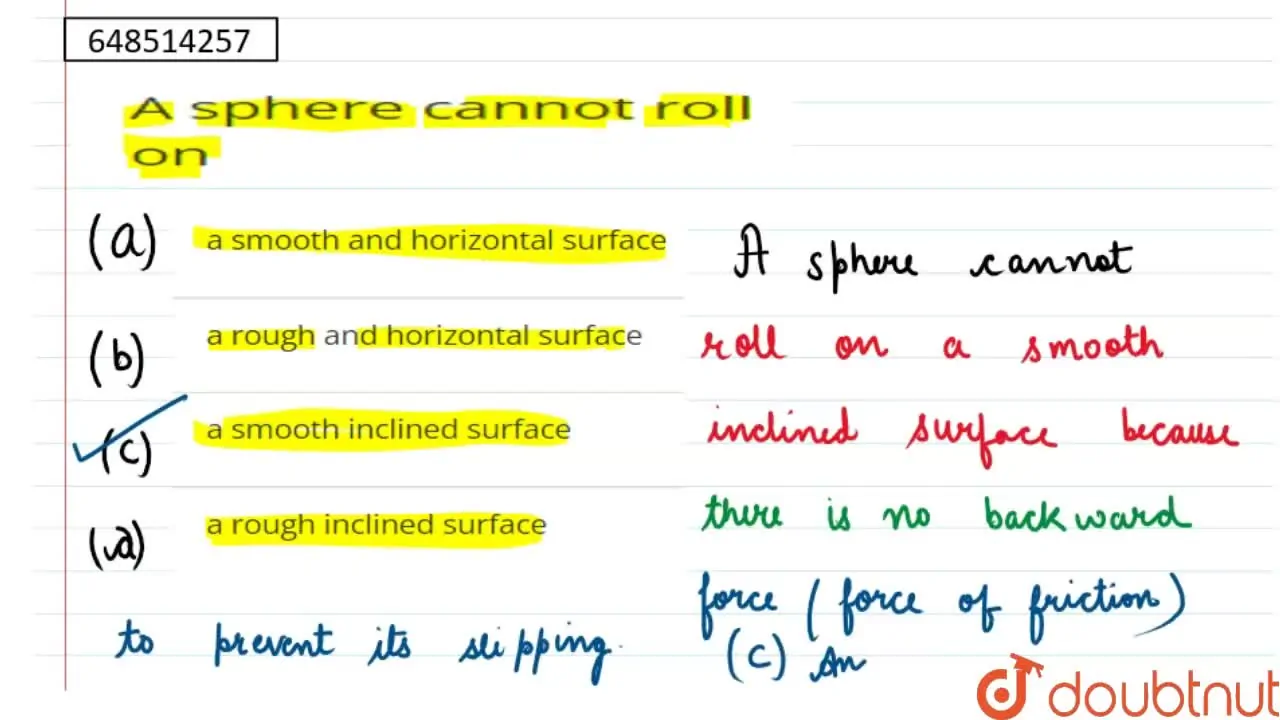 648514257
A sphere cannot roll
on
(a) a smooth and horizontal surface
(b) a rough and horizontal surface
(c) a smooth inclined surface
(d) a rough inclined surface
A sphere cannot
roll on a smooth
inclined surface because
there is no backward
force (force of friction)
to prevent its slipping.
(c) An
doubtnut